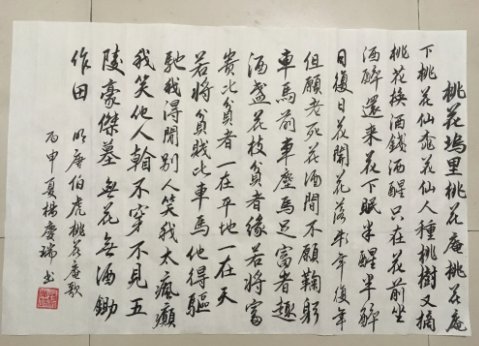 桃花塢里桃花庵桃花庵
下桃花仙桃花仙人種桃樹又摘
桃花換酒錢酒醒只在花前坐
酒醉還來花下眠半醒半醉
日復日花開花落年復年
但願老死花酒間不願鞠躬
車馬前車塵馬足富者趣
酒盞花枝貧者緣若將富
貴比貧者一在平地一在天
若將貧賤比車馬他得驅
馳我得閒別人笑我太瘋癲
我笑他人不穿不見五
陵豪傑墓無花無酒鋤
作田 明唐伯虎桃花庵歌
丙申夏楊慶瑞書